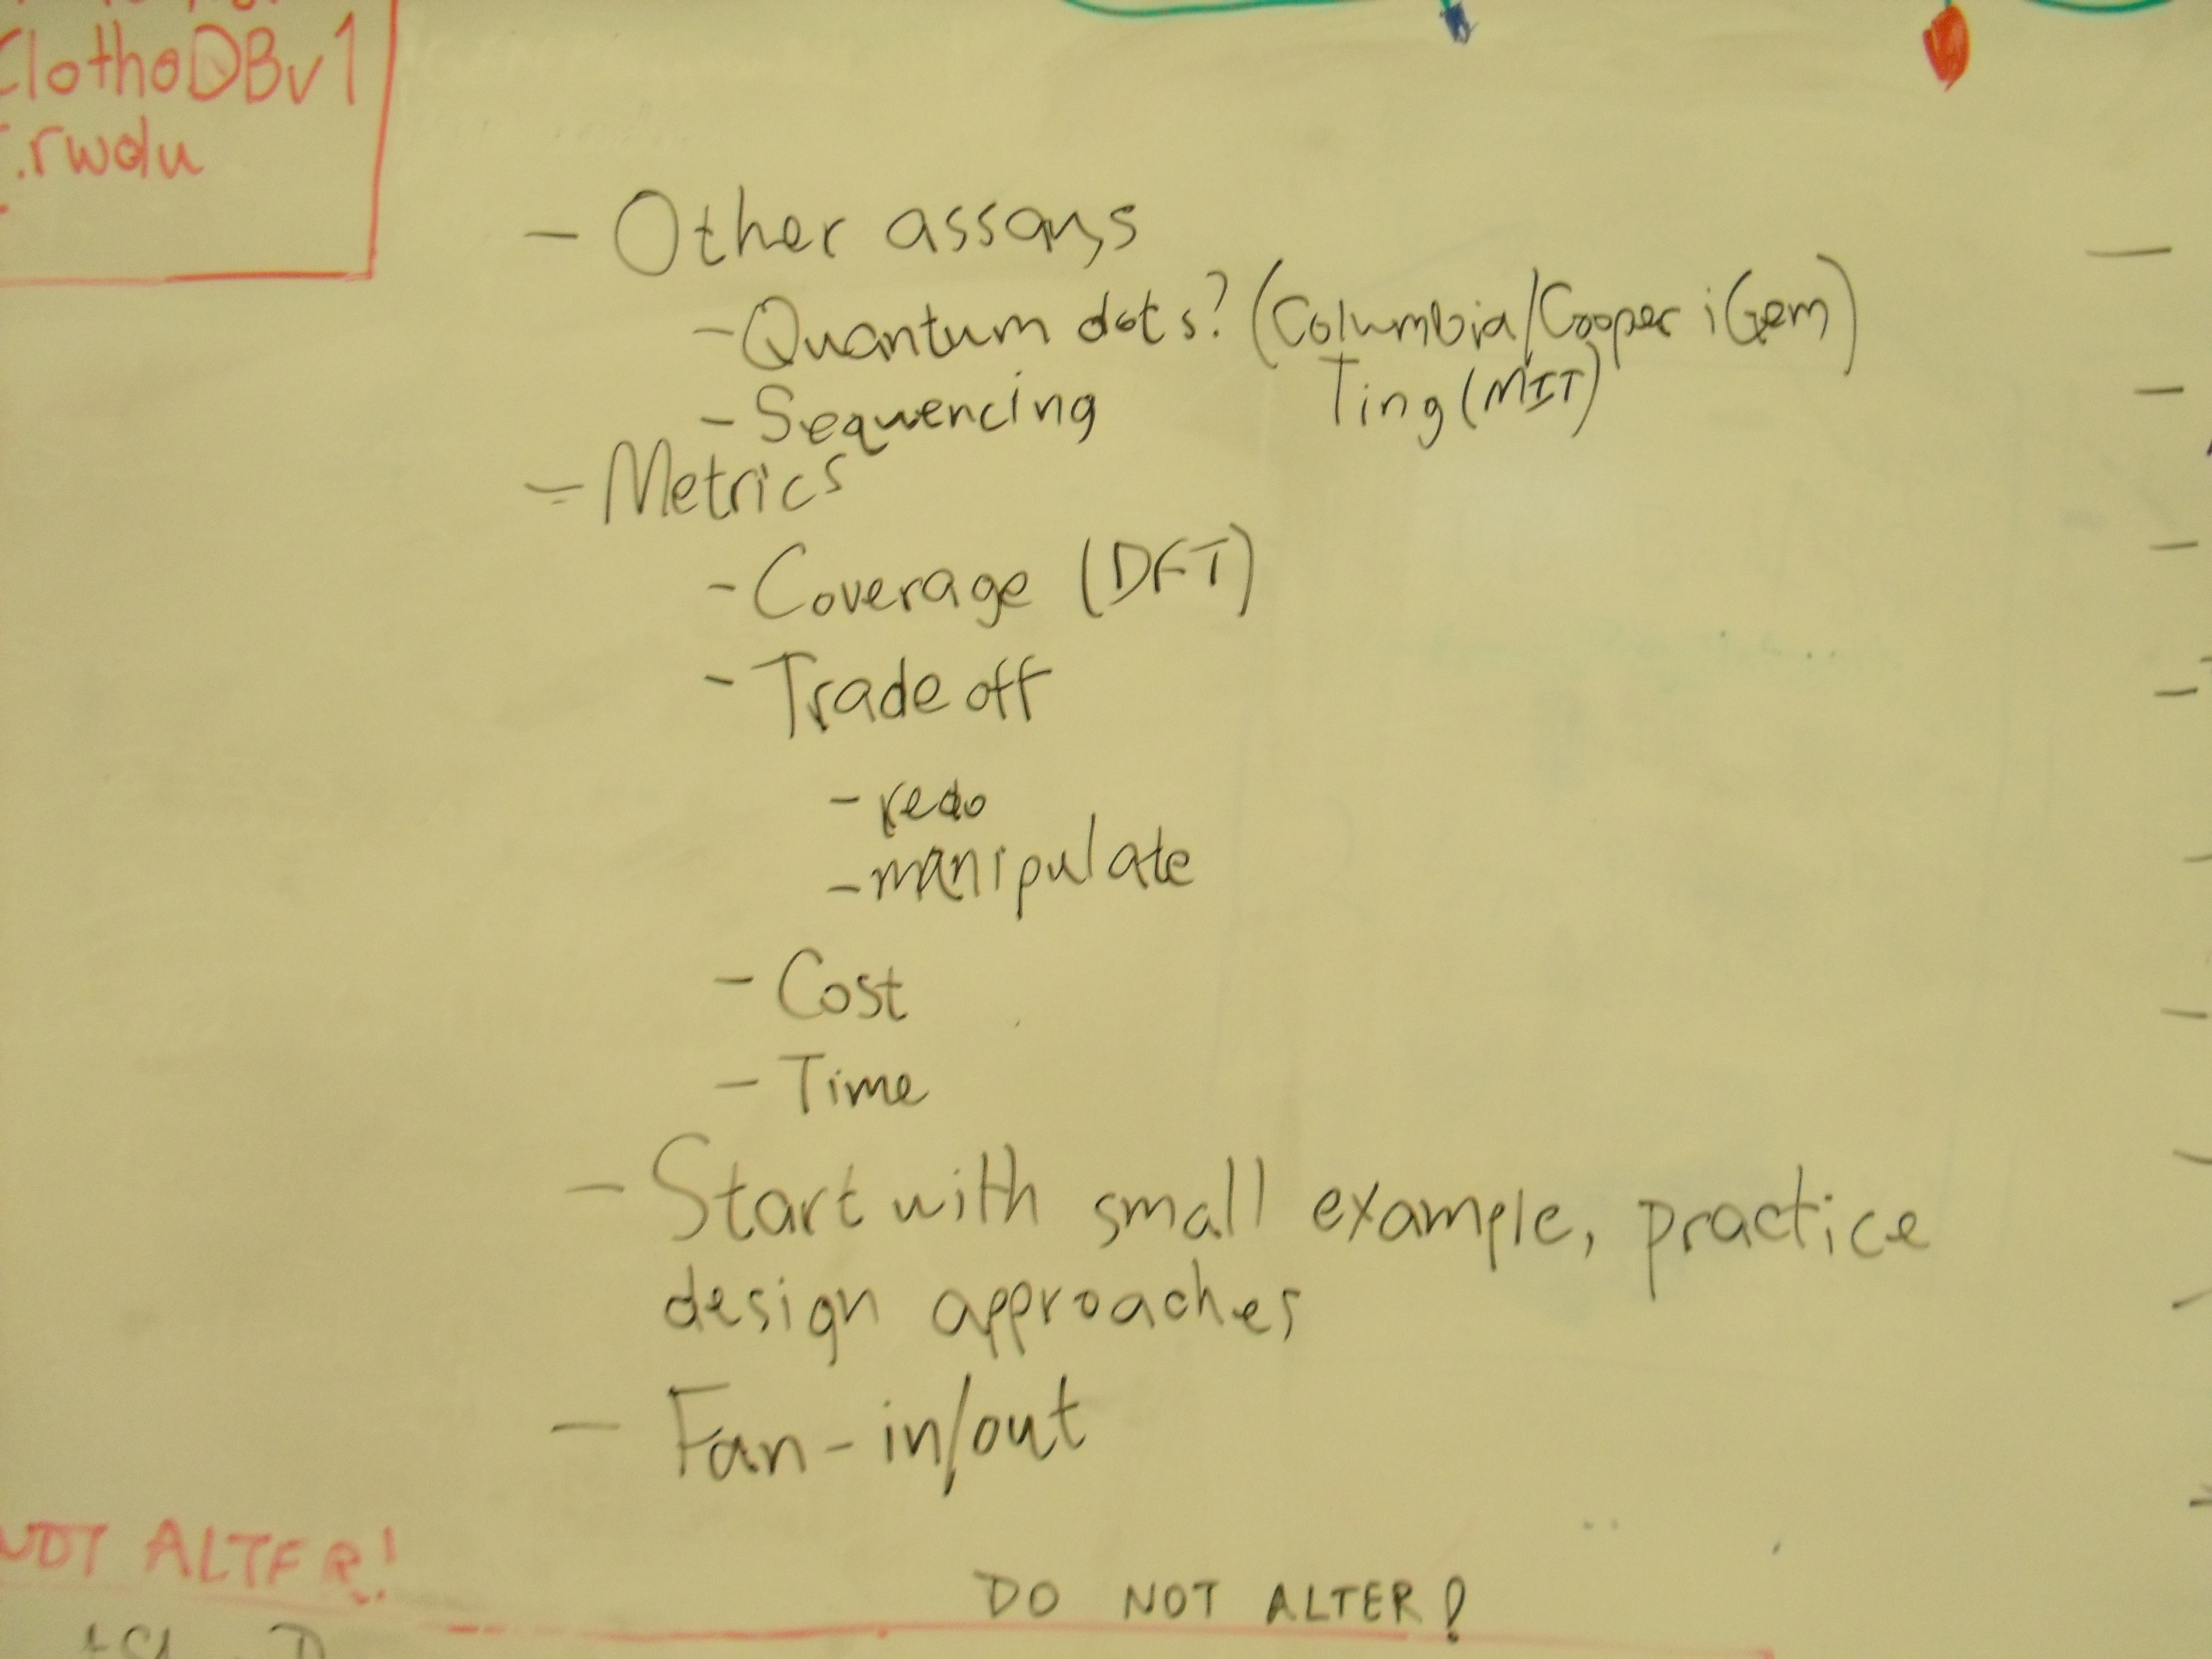 ClothoDBv1
.rwdu
- Other assays
- Quantum dots? (Columbia/Cooper iGem)
- Sequencing Ting (MIT)
- Metrics
- Coverage (DFT)
- Trade off
- redo
- manipulate
- Cost
- Time
- Start with small example, practice
design approaches
- Fan-in/out
NOT ALTER!
DO NOT ALTER!